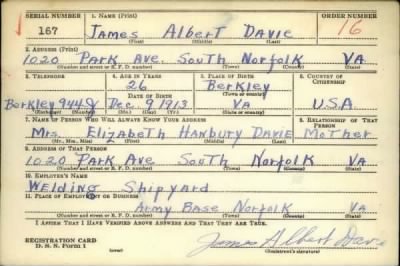 SERIAL NUMBER 1. NAME (Print) ORDER NUMBER
167 James Albert Davie 16
(First) (Middle) (Last)
2. ADDRESS (Print)
1020 Park Ave. South Norfolk VA
(Number and street or R. F. D. number) (Town) (County) (State)
3. TELEPHONE 4. AGE IN YEARS 5. PLACE OF BIRTH 6. COUNTRY OF CITIZENSHIP
26 Berkley
DATE OF BIRTH (Town or county)
Berkley Dec. 9 1913 VA U.S.A
(Exchange) (Number) (Mo.) (Day) (Yr.) (State or country)
7. NAME OF PERSON WHO WILL ALWAYS KNOW YOUR ADDRESS 8. RELATIONSHIP OF THAT PERSON
Mrs. Elizabeth Hanbury Davie Mother
(Mr., Mrs., Miss) (First) (Middle) (Last)
9. ADDRESS OF THAT PERSON
1020 Park Ave South Norfolk Va
(Number and street or R. F. D. number) (Town) (County) (State)
10. EMPLOYER'S NAME
Welding Shipyard
11. PLACE OF EMPLOYMENT OR BUSINESS
Army Base Norfolk Va
(Number and street or R. F. D. number) (Town) (County) (State)
I AFFIRM THAT I HAVE VERIFIED ABOVE ANSWERS AND THAT THEY ARE TRUE.
REGISTRATION CARD
D. S. S. Form 1 (over) James Albert Davie
(Registrant's signature)